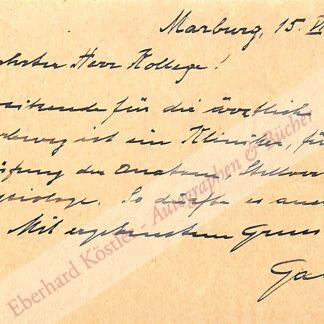 Marburg, 15. VI
hrter Herr Kollege!
sitzende für die ärztliche
ist ein Kliniker, für
üfung der Anatom, Stellver
ysiologe. So dürfte es auch
Mit ergebenstem Gruss
Ga
Eberhard Köstler Autographen & Bücher